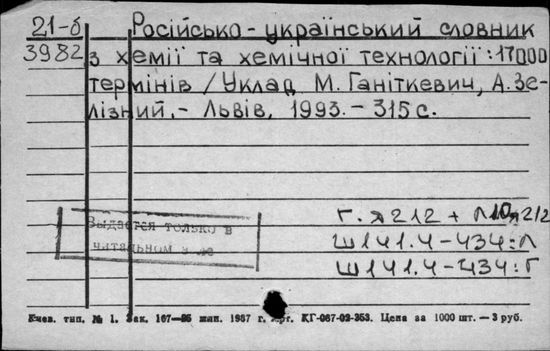 21-б Російсько-український словник
3982 з хемії та хемічної технології: 17000
термінів / Уклад. М. Ганіткевич, А. Зе-
лізний. - Львів, 1993. - 315 с.
Г. Я212 + Л10я212
Выдается только в
читальном зале
Ш141.4-434:Л
Ш141.4-434:Г
Киев. тип. № 1. Зак. 167—86 мин. 1987 г. Арт. КГ-067-02-353. Цена за 1000 шт. — 3 руб.